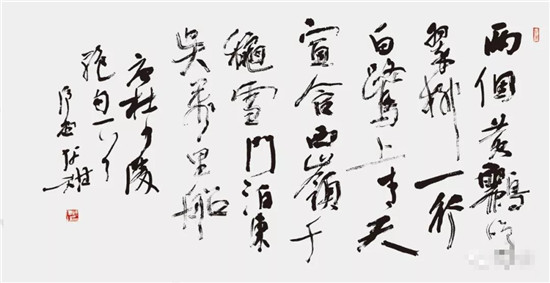 兩個黄鸝鳴
翠柳一行
白鷺上青天
窗含西嶺千
龝雪門泊東
吳萬里船
右杜少陵
絕句一首